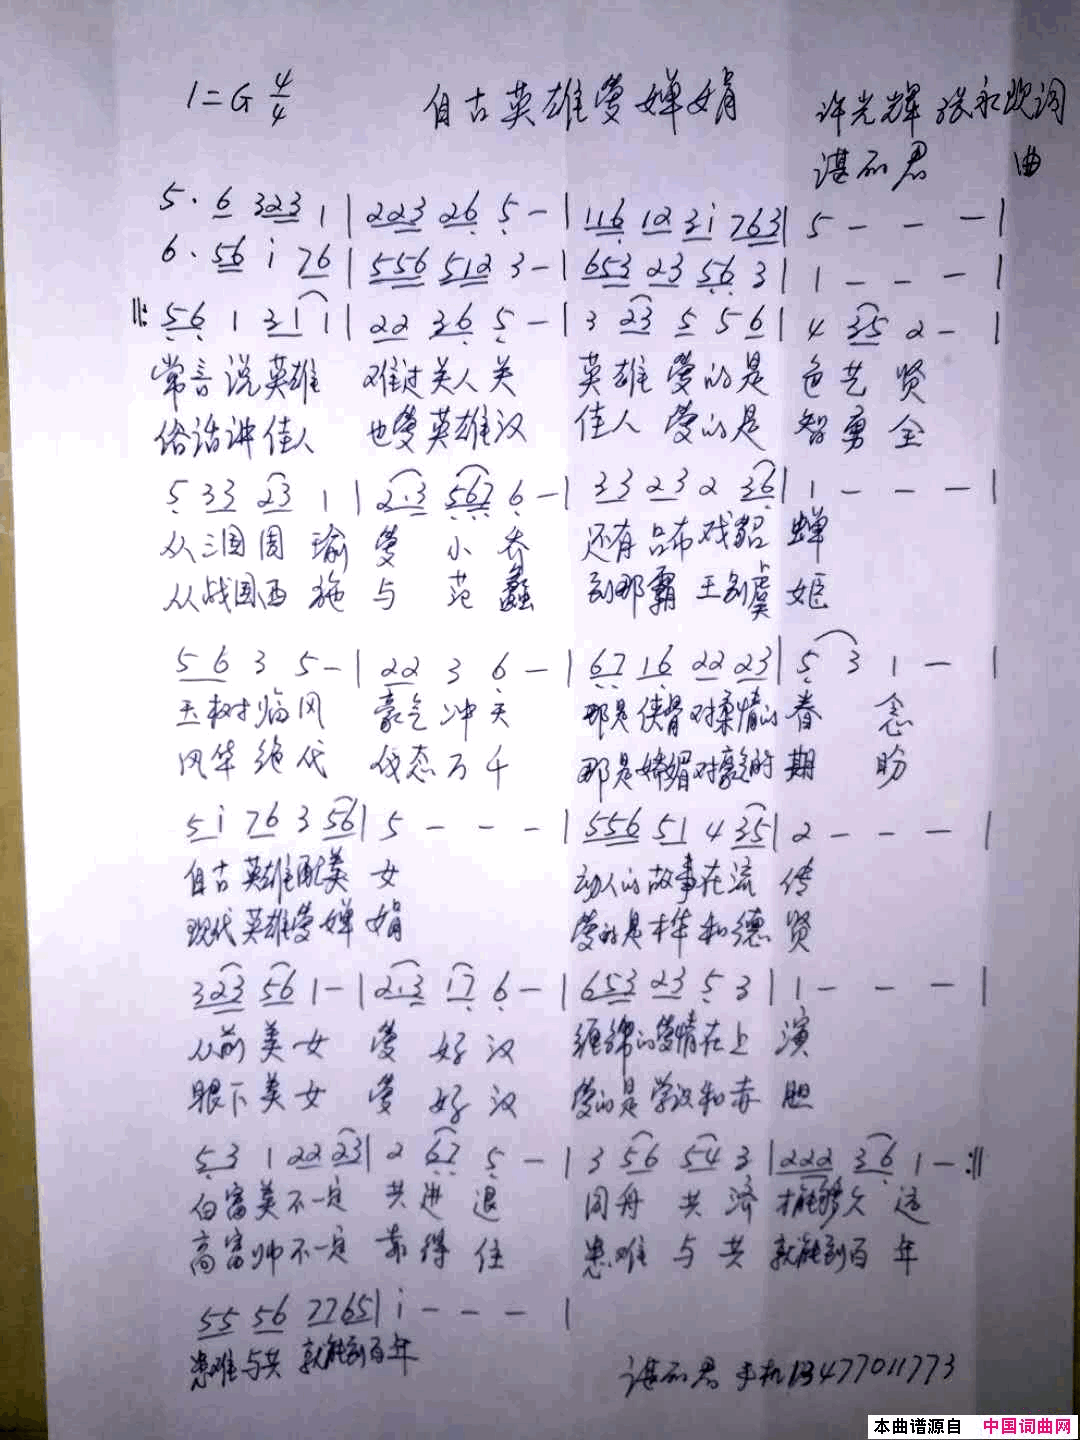 1=G 4/4 自古英雄爱婵娟 许光辉 张永欢词
谌石君 曲
5· 6 323 1 | 223 26 5 - | 116 12 31 763 | 5 - - - |
6· 56 i 76 | 556 512 3 - | 653 23 56 3 | 1 - - - |
‖: 56 1 311 | 22 36 5 - | 3 23 5 5 6 | 4 35 2 - |
常言说英雄 难过美人关 英雄爱的是 色艺贤
俗话讲佳人 也爱英雄汉 佳人爱的是 智勇全
5 33 23 1 | 2·3 567 6 - | 33 23 2 36 | 1 - - - |
从三国周瑜爱小乔 还有吕布戏貂蝉
从战国西施与范蠡 到那霸王别虞姬
56 3 5 - | 22 3 6 - | 67 16 22 23 | 5 3 1 - |
玉树临风 豪气冲天 那是侠骨对柔情的眷念
风华绝代 仪态万千 那是娇媚对豪气的期盼
5i 76 3 56 | 5 - - - | 556 51 4 35 | 2 - - - |
自古英雄配美女 动人的故事在流传
现代英雄爱婵娟 爱的是才华和德贤
323 56 1 - | 2·3 17 6 - | 653 23 5 3 | 1 - - - |
从前美女爱好汉 缠绵的爱情在上演
眼下美女爱好汉 爱的是学识和赤胆
53 1 22 23 | 2 67 5 - | 3 56 54 3 | 222 36 1 - :‖
白富美不一定 共进退 同舟共济 才能够久远
高富帅不一定 靠得住 患难与共 就能到百年
55 56 7765 | i - - - |
患难与共 就能到百年
谌石君 手机13477011773
本曲谱源自 中国词曲网